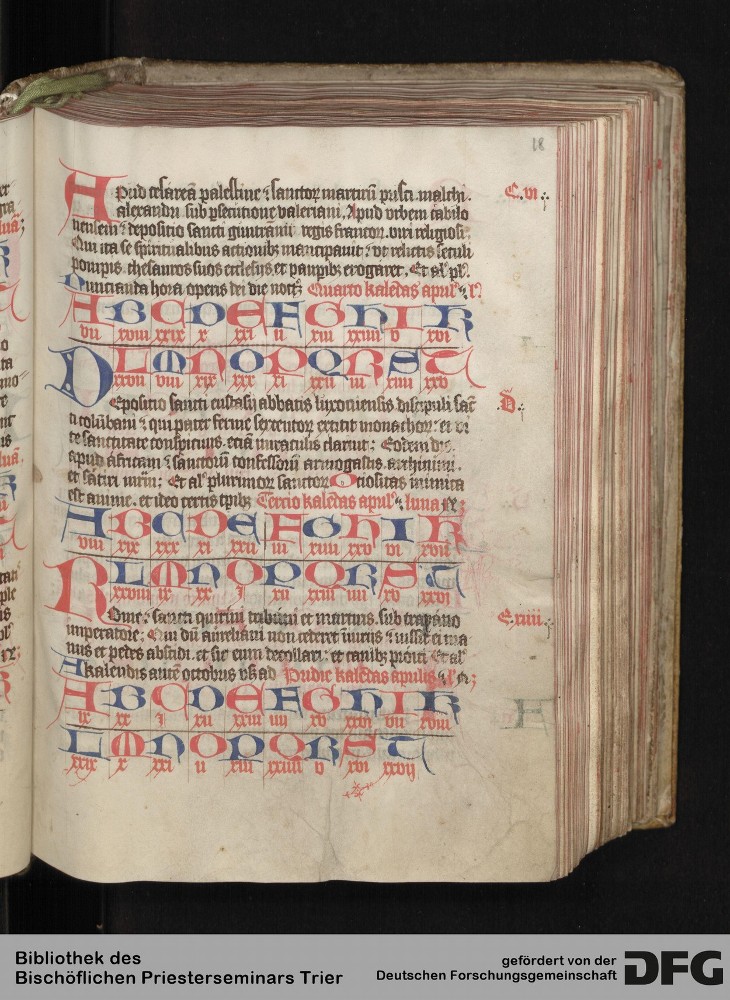 18
Apud cesareā palestine sanctoꝝ martirū prisci. malchi.
alexandri sub ꝑsecutione valeriani. Apud vrbem cabilo
nensem depositio sancti guntranni regis francoꝝ. viri religiosi.
C. vi
Qui ita se spiritualibus actionibꝫ mancipauit ut relictis seculi
pompis. thesauros suos ecclesijs et pauꝑibꝫ erogaret. Et al' pl'.
Nuncianda hora operis dei die noctꝫ Quarto kalēdas april' l'
A B C D E F G H I K
vii xviii xxix x xxi ii xiii xxiiii v xvi
L M N O P Q R S T
xxvii viii xix xxx xi xxii iii xiiii xxv
Depositio sancti eustasij abbatis luxouiensis discipuli sāc
D
ti colūbani qui pater ferme sexcentoꝝ extitit monachoꝝ et vi
te sanctitate conspicuus. etiā miraculis claruit
apud africam sanctorū confessorū armogastis. archinimi.
et satiri Et al' plurimoꝝ sanctoꝝ Ociositas inimica
est anime. et ideo certis tꝑibꝫ Tercio kalēdas april' luna
A B C D E F G H I K
viii xix xxx xi xxii iii xiiii xxv vi xvii
L M N O P Q R S T
xxviii ix xx i xii xxiii iiii xv xxvi
Rome sancti quirini tribuni et martiris. sub
C. xiiii
imperatore Qui dū aureliani non cederet iussit ei ma
nus et pedes abscidi. et sic eum decollari et canibꝫ proici Et al'
A kalendis autē octobris vsꝫ ad Pridie kalēdas aprilis l'
A B C D E F G H I K
ix xx i xii xxiii iiii xv xxvi vii xviii
L M N O P Q R S T
xxix x xxi ii xiii xxiiii v xvi xxvij
Bibliothek des
Bischöflichen Priesterseminars Trier
gefördert von der
Deutschen Forschungsgemeinschaft
DFG